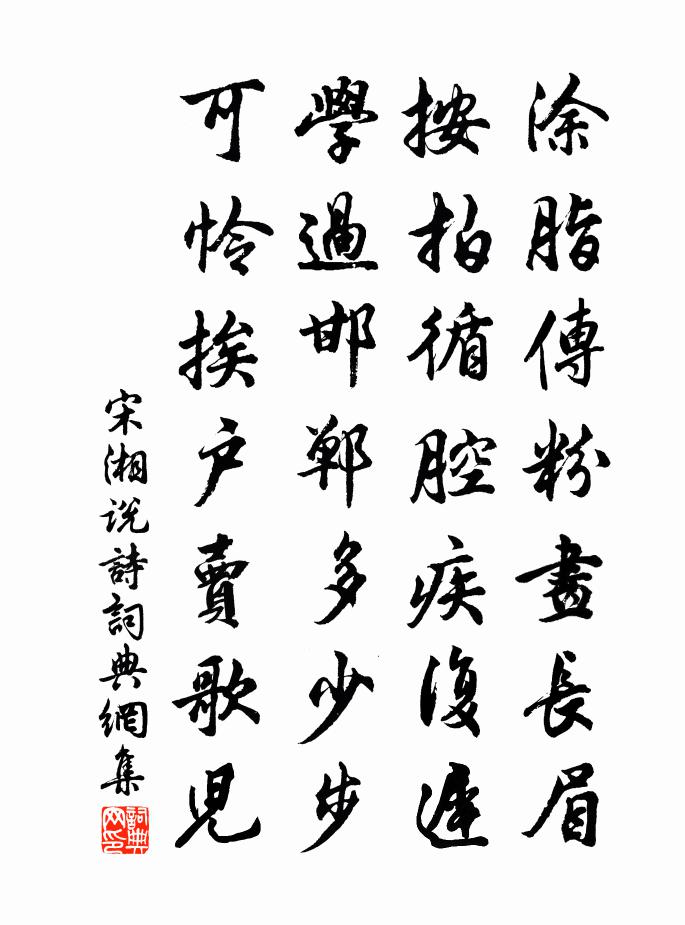 涂脂傅粉畫長眉
按拍循腔疾復遲
學過邯鄲多少步
可憐挨户賣歌兒
宋湘説詩詞典網集
詞典網印